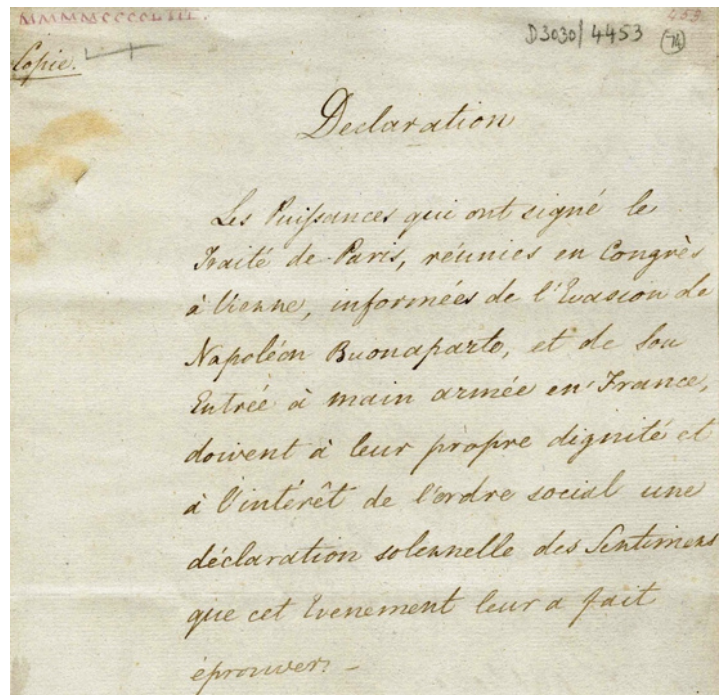 MMMMCCCCLIII.
453
D3030/4453 (74)
Copie.
Declaration
Les Puissances qui ont signé le
Traité de Paris, réunies en Congrès
à Vienne, informées de l'Evasion de
Napoléon Buonaparte, et de son
Entrée à main armée en France,
doivent à leur propre dignité et
à l'intérêt de l'ordre social une
déclaration solennelle des Sentimens
que cet Evenement leur a fait
éprouver. –